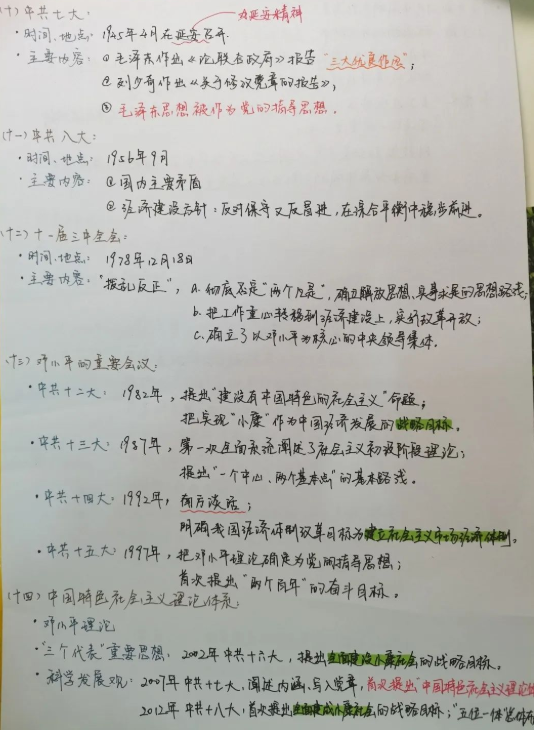 为延安精神
(十)中共七大:
·时间、地点:1945年4月在延安召开.
·主要内容:①毛泽东作出《论联合政府》报告"三大优良作风";
②刘少奇作出《关于修改党章的报告》;
③毛泽东思想被作为党的指导思想.
(十一)中共八大:
·时间、地点:1956年9月
·主要内容:①国内主要矛盾
②经济建设方针:反对保守又反冒进,在综合平衡中稳步前进。
(十二)十一届三中全会:
·时间、地点:1978年12月18日
·主要内容:"拨乱反正",a.彻底否定"两个凡是",确立解放思想、实事求是的思想路线;
b.把工作重心转移到经济建设上,实行改革开放;
c.确立了以邓小平为核心的中央领导集体.
(十三)邓小平的重要会议:
·中共十二大:1982年,提出"建设有中国特色的社会主义"命题;
把实现"小康"作为中国经济发展的战略目标.
·中共十三大:1987年,第一次全面系统阐述了社会主义初级阶段理论;
提出"一个中心、两个基本点"的基本路线.
·中共十四大:1992年,南方谈话;
明确我国经济体制改革目标为建立社会主义市场经济体制。
·中共十五大:1997年,把邓小平理论确定为党的指导思想;
首次提出"两个百年"的奋斗目标.
(十四)中国特色社会主义理论体系:
·邓小平理论
·"三个代表"重要思想:2002年中共十六大,提出全面建设小康社会的战略目标.
·科学发展观:2007年中共十七大,阐述内涵、写入党章,首次提出"中国特色社会主义理论体
2012年中共十八大,首次提出全面建成小康社会的战略目标;"五位一体"总体布